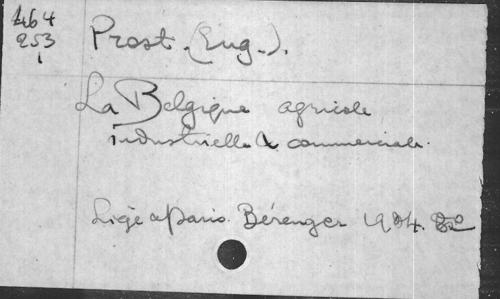 464
253
1
Prost. (Eug.).
La Belgique agricole
industrielle & commerciale.
Liège & Paris. Béranger 1904. 8º